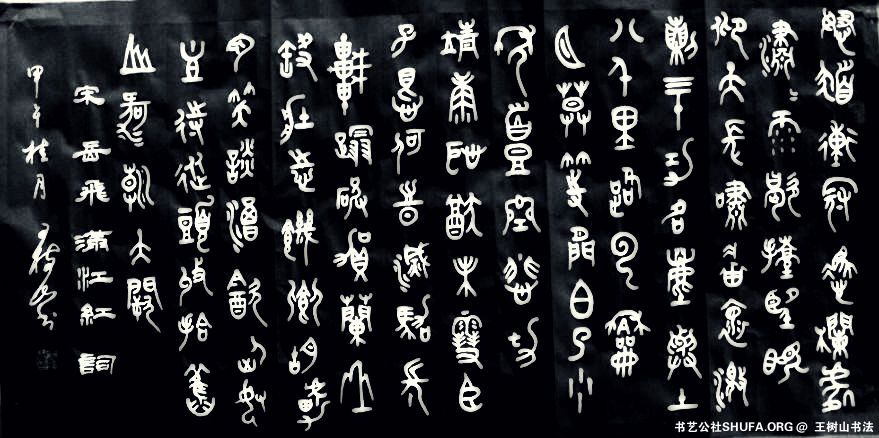 怒髮衝冠憑欄處
瀟〻雨歇擡望眼
仰天長嘯壯懷激
烈三十功名塵與土
八千里路雲和
月莫等閒白了少
年頭空悲切
靖康恥猶未雪臣
子恨何時滅駕長
車踏破賀蘭山
缺壯志飢餐胡虜
肉笑談渴飲匈奴
血待從頭收拾舊
山河朝天闕
宋岳飛滿江紅詞
甲午桂月王樹山
书艺公社SHUFA.ORG @ 王树山书法